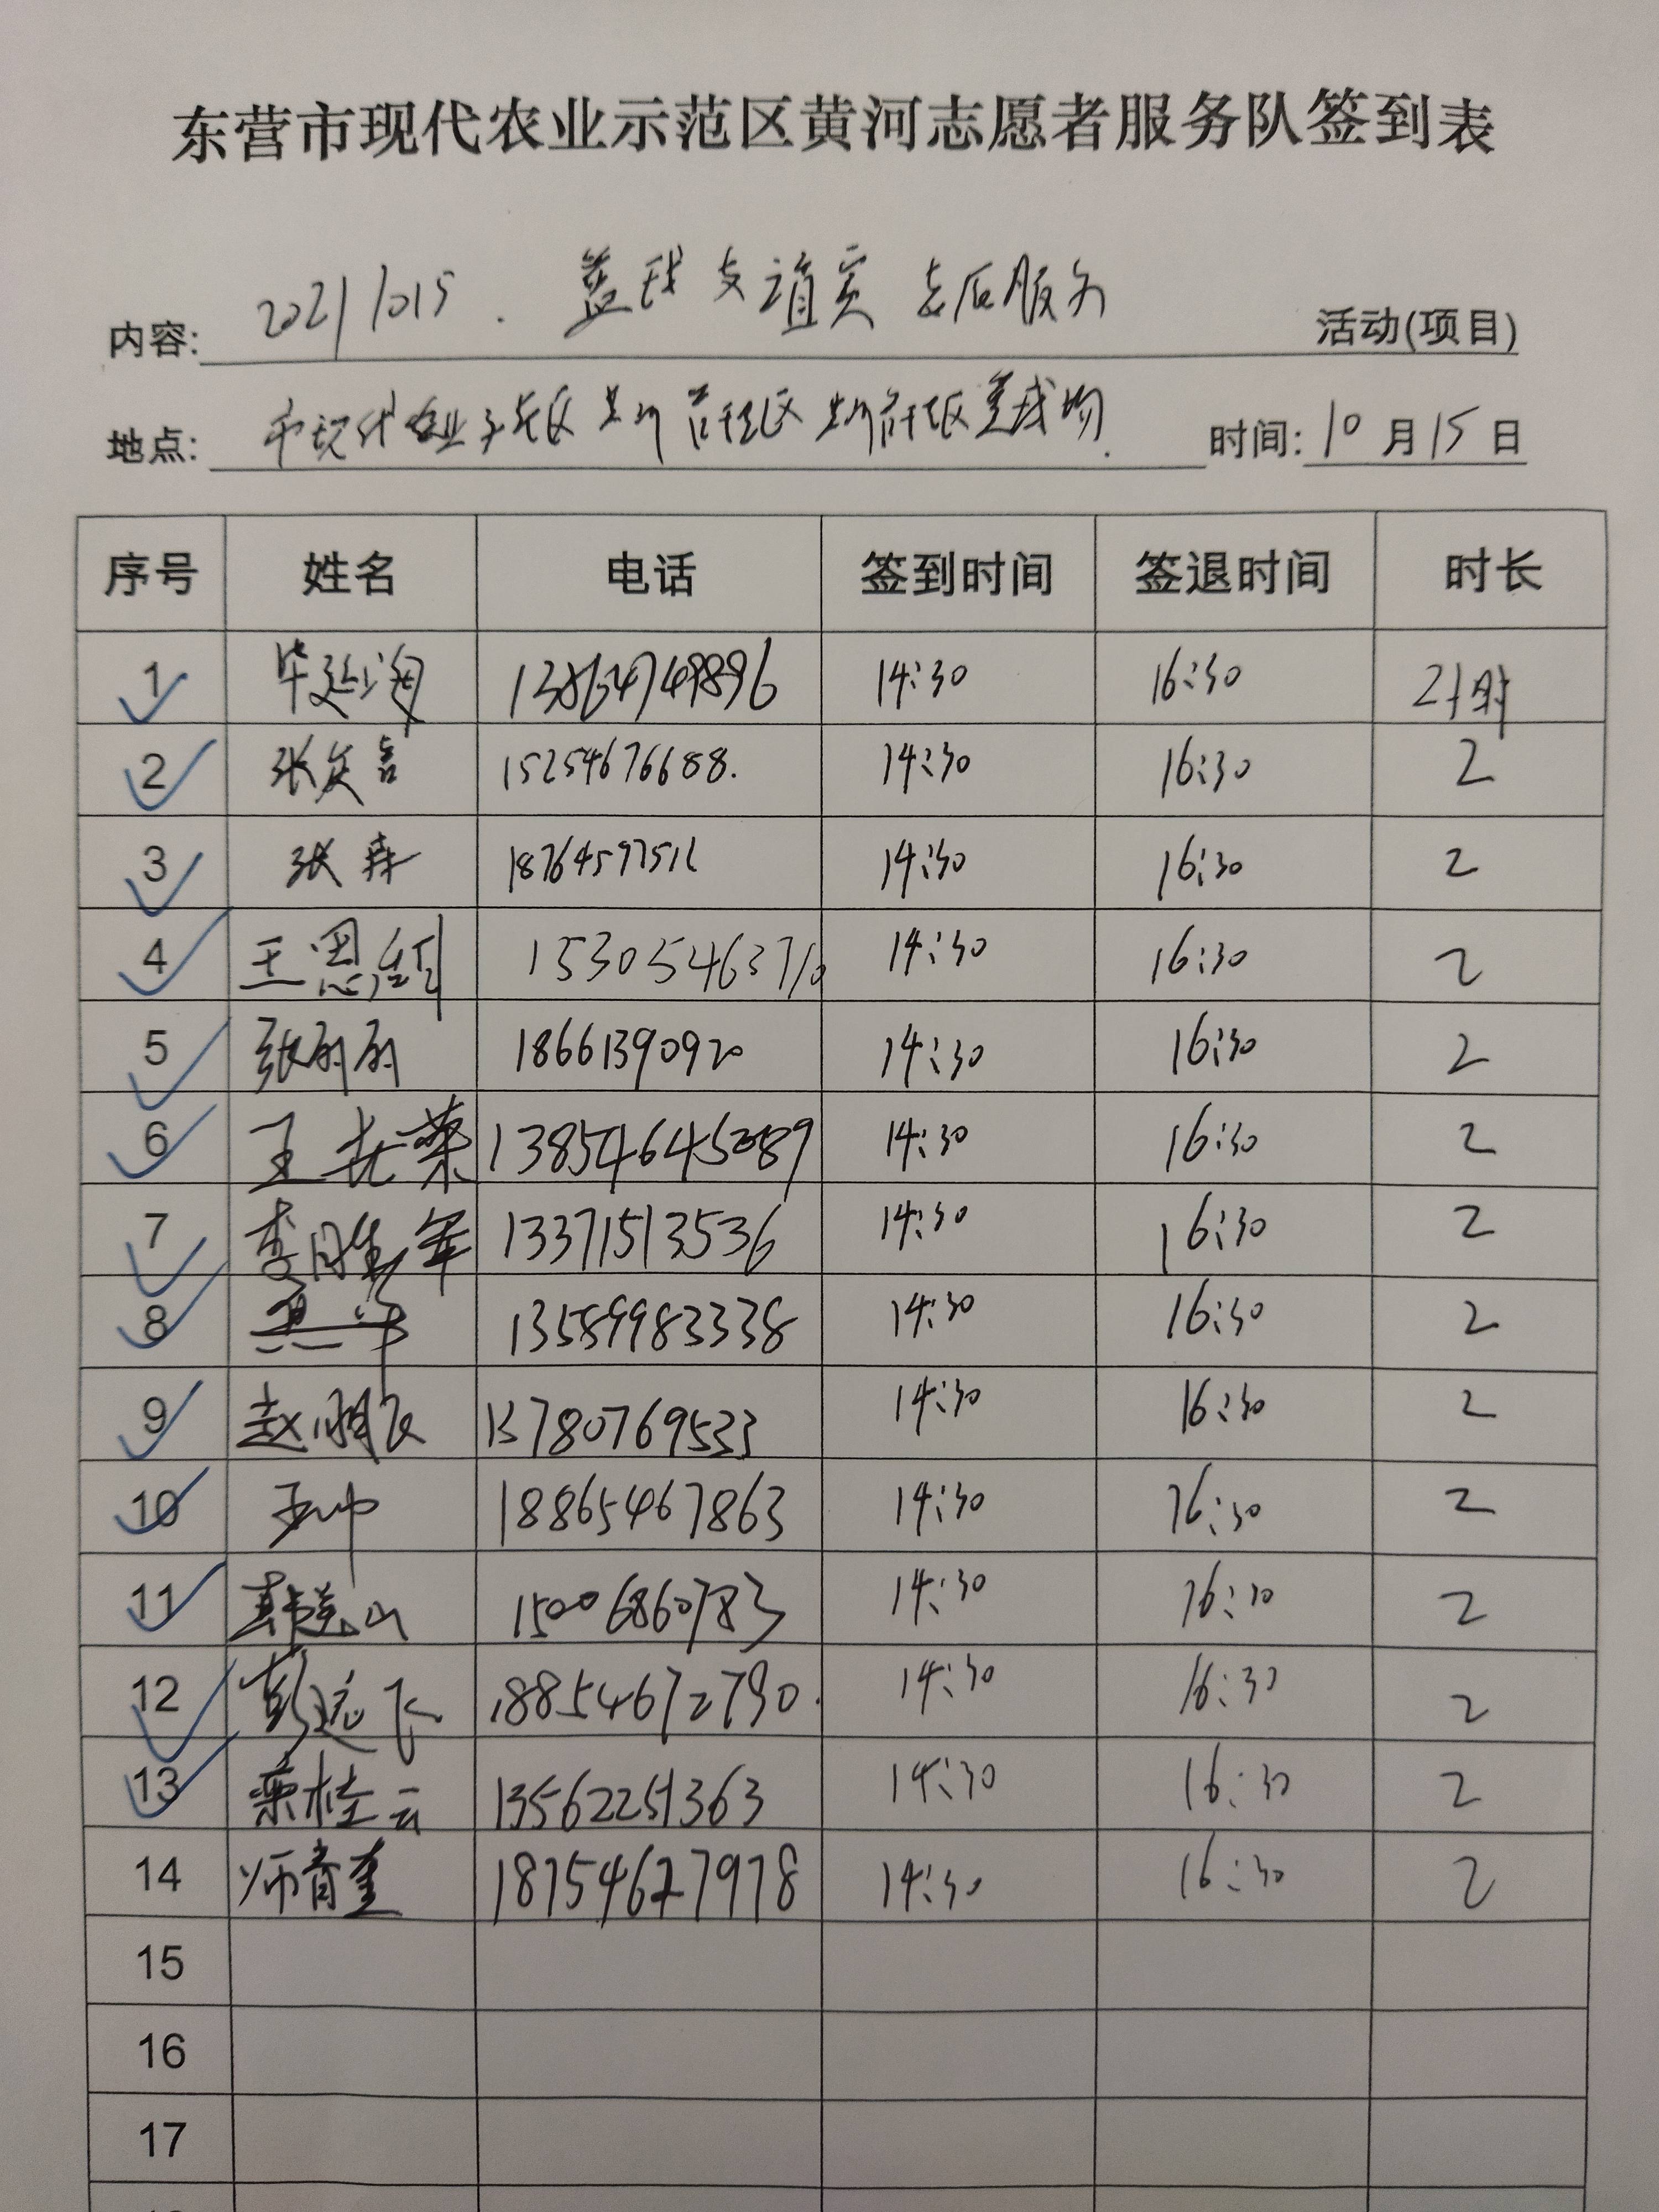 东营市现代农业示范区黄河志愿者服务队签到表
内容: 20211015. 篮球友谊赛 志愿服务 活动(项目)
地点: 市现代农业示范区 篮球场. 时间: 10月15日
序号 姓名 电话 签到时间 签退时间 时长
1 毕延海 13864749896 14:30 16:30 2小时
2 张 15254676688. 14:30 16:30 2
3 张 18764597512 14:30 16:30 2
4 王恩红 15305463710 14:30 16:30 2
5 张丽丽 1866139092 14:30 16:30 2
6 王 荣 13854645089 14:30 16:30 2
7 李胜军 13371513536 14:30 16:30 2
8 13589983338 14:30 16:30 2
9 赵鹏飞 13780769533 14:30 16:30 2
10 王冲 18865467863 14:30 16:30 2
11 山 15006860783 14:30 16:30 2
12 彭远飞 18854672790. 14:30 16:30 2
13 栾桂云 13562251363 14:30 16:30 2
14 师育奎 18754627978 14:30 16:30 2
15
16
17